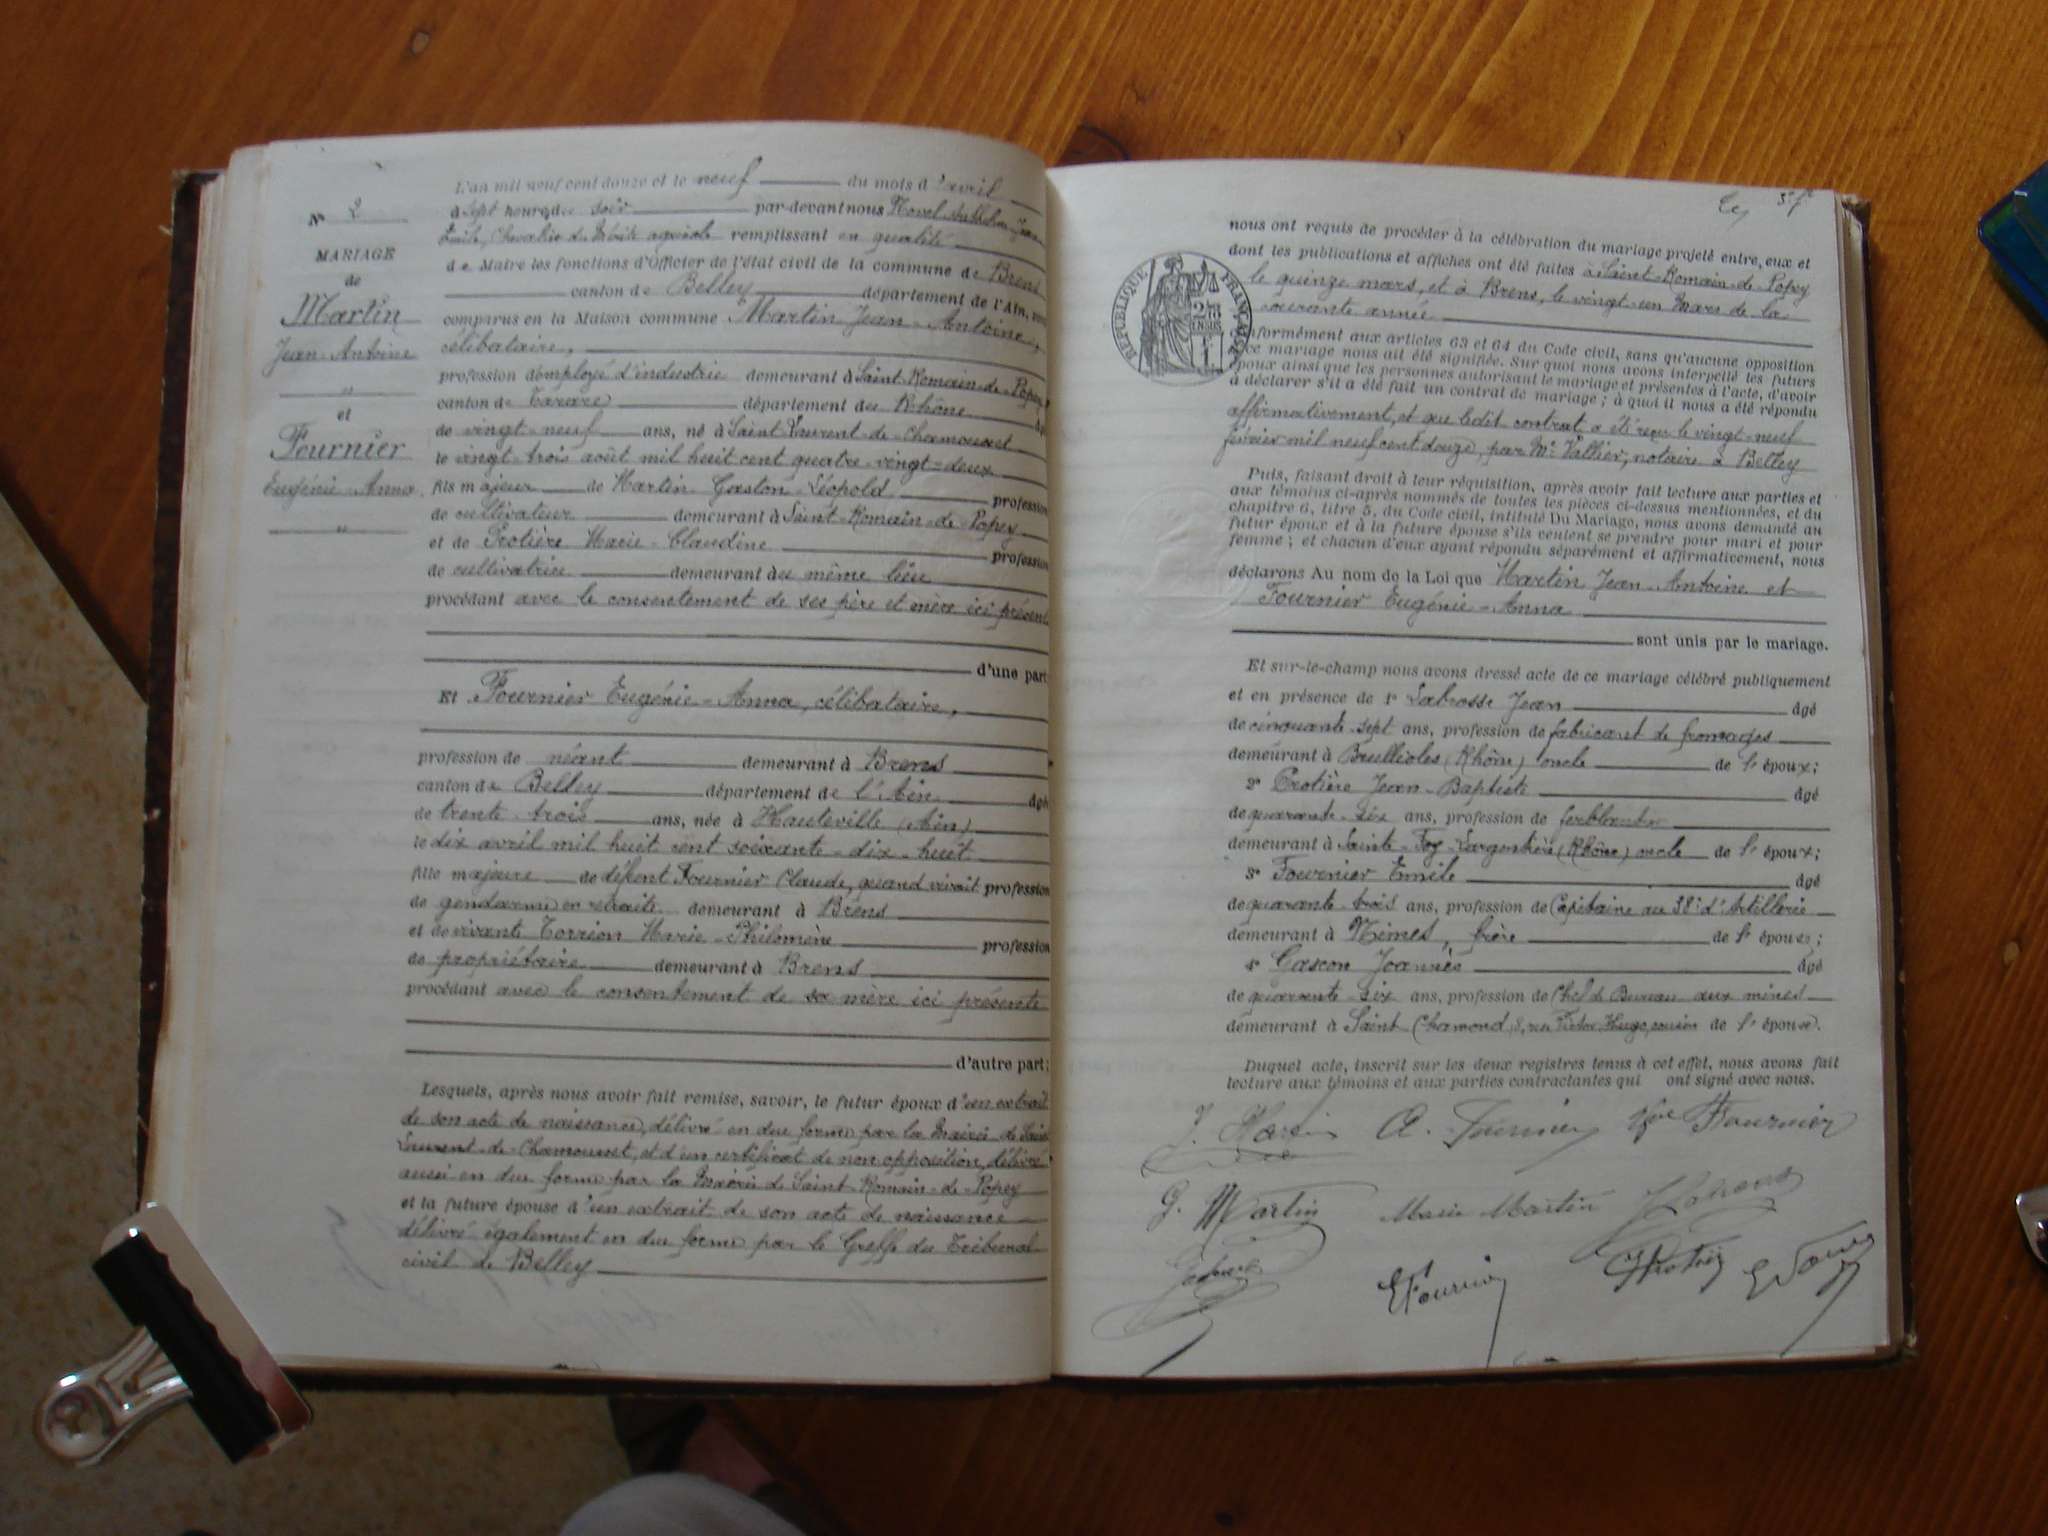 N° 2
MARIAGE
de
Martin
Jean-Antoine
"
et
Fournier
Eugénie-Anna
"
L'an mil neuf cent douze et le neuf du mois d'avril
à sept heures du soir par-devant nous
Emile, Chevalier du Mérite agricole remplissant en qualité
de Maire les fonctions d'Officier de l'état civil de la commune de Brens
canton de Belley département de l'Ain, sont
comparus en la Maison commune Martin Jean-Antoine,
célibataire,
profession d'employé d'industrie demeurant à Saint-Romain-de-Popey
canton de Tarare département du Rhône âgé
de vingt-neuf ans, né à Saint-Laurent-de-Chamousset
le vingt-trois août mil huit cent quatre-vingt-deux
fils majeur de Martin Gaston-Léopold profession
de cultivateur demeurant à Saint-Romain-de-Popey
et de Protière Marie-Claudine profession
de cultivatrice demeurant au même lieu
procédant avec le consentement de ses père et mère ici présents
d'une part
Et Fournier Eugénie-Anna, célibataire,
profession de néant demeurant à Brens
canton de Belley département de l'Ain âgée
de trente-trois ans, née à Hauteville (Ain)
le dix avril mil huit cent soixante-dix-huit
fille majeure de défunt Fournier Claude, quand vivait profession
de gendarme en retraite demeurant à Brens
et de vivante Torrion Marie-Philomène profession
de propriétaire demeurant à Brens
procédant avec le consentement de sa mère ici présente
d'autre part;
Lesquels, après nous avoir fait remise, savoir, le futur époux d'un extrait
de son acte de naissance, délivré en due forme par la Mairie de Saint
Laurent-de-Chamousset, et d'un certificat de non opposition, délivré
aussi en due forme par la Mairie de Saint-Romain-de-Popey
et la future épouse d'un extrait de son acte de naissance
délivré également en due forme par le Greffe du Tribunal
civil de Belley
nous ont requis de procéder à la célébration du mariage projeté entre eux et
dont les publications et affiches ont été faites à Saint-Romain-de-Popey
le quinze mars, et à Brens, le vingt-un Mars de la
courante année
RÉPUBLIQUE FRANÇAISE
formément aux articles 63 et 64 du Code civil, sans qu'aucune opposition
ce mariage nous ait été signifiée. Sur quoi nous avons interpellé les futurs
époux ainsi que les personnes autorisant le mariage et présentes à l'acte, d'avoir
à déclarer s'il a été fait un contrat de mariage; à quoi il nous a été répondu
affirmativement, et que ledit contrat a été reçu le vingt-neuf
février mil neuf cent douze, par Me Vallier, notaire à Belley
Puis, faisant droit à leur réquisition, après avoir fait lecture aux parties et
aux témoins ci-après nommés de toutes les pièces ci-dessus mentionnées, et du
chapitre 6, titre 5, du Code civil, intitulé Du Mariage, nous avons demandé au
futur époux et à la future épouse s'ils veulent se prendre pour mari et pour
femme; et chacun d'eux ayant répondu séparément et affirmativement, nous
déclarons Au nom de la Loi que Martin Jean-Antoine et
Fournier Eugénie-Anna
sont unis par le mariage.
Et sur-le-champ nous avons dressé acte de ce mariage célébré publiquement
et en présence de 1° Labrosse Jean âgé
de cinquante-sept ans, profession de fabricant de fromages
demeurant à Brullioles (Rhône) oncle de l'époux;
2° Protière Jean-Baptiste âgé
de quarante-six ans, profession de ferblantier
demeurant à Sainte-Foy-Largentière (Rhône) oncle de l'époux;
3° Fournier Emile âgé
de quarante-trois ans, profession de Capitaine au 38e d'Artillerie
demeurant à Nîmes, frère de l'épouse;
4° Gascon Joannès âgé
de quarante-six ans, profession de Chef de Bureau aux mines
demeurant à Saint Chamond, rue Victor Hugo, cousin de l'épouse.
Duquel acte, inscrit sur les deux registres tenus à cet effet, nous avons fait
lecture aux témoins et aux parties contractantes qui ont signé avec nous.
J. Martin A. Fournier Vve Fournier
G. Martin Marie Martin
EFournier Protière